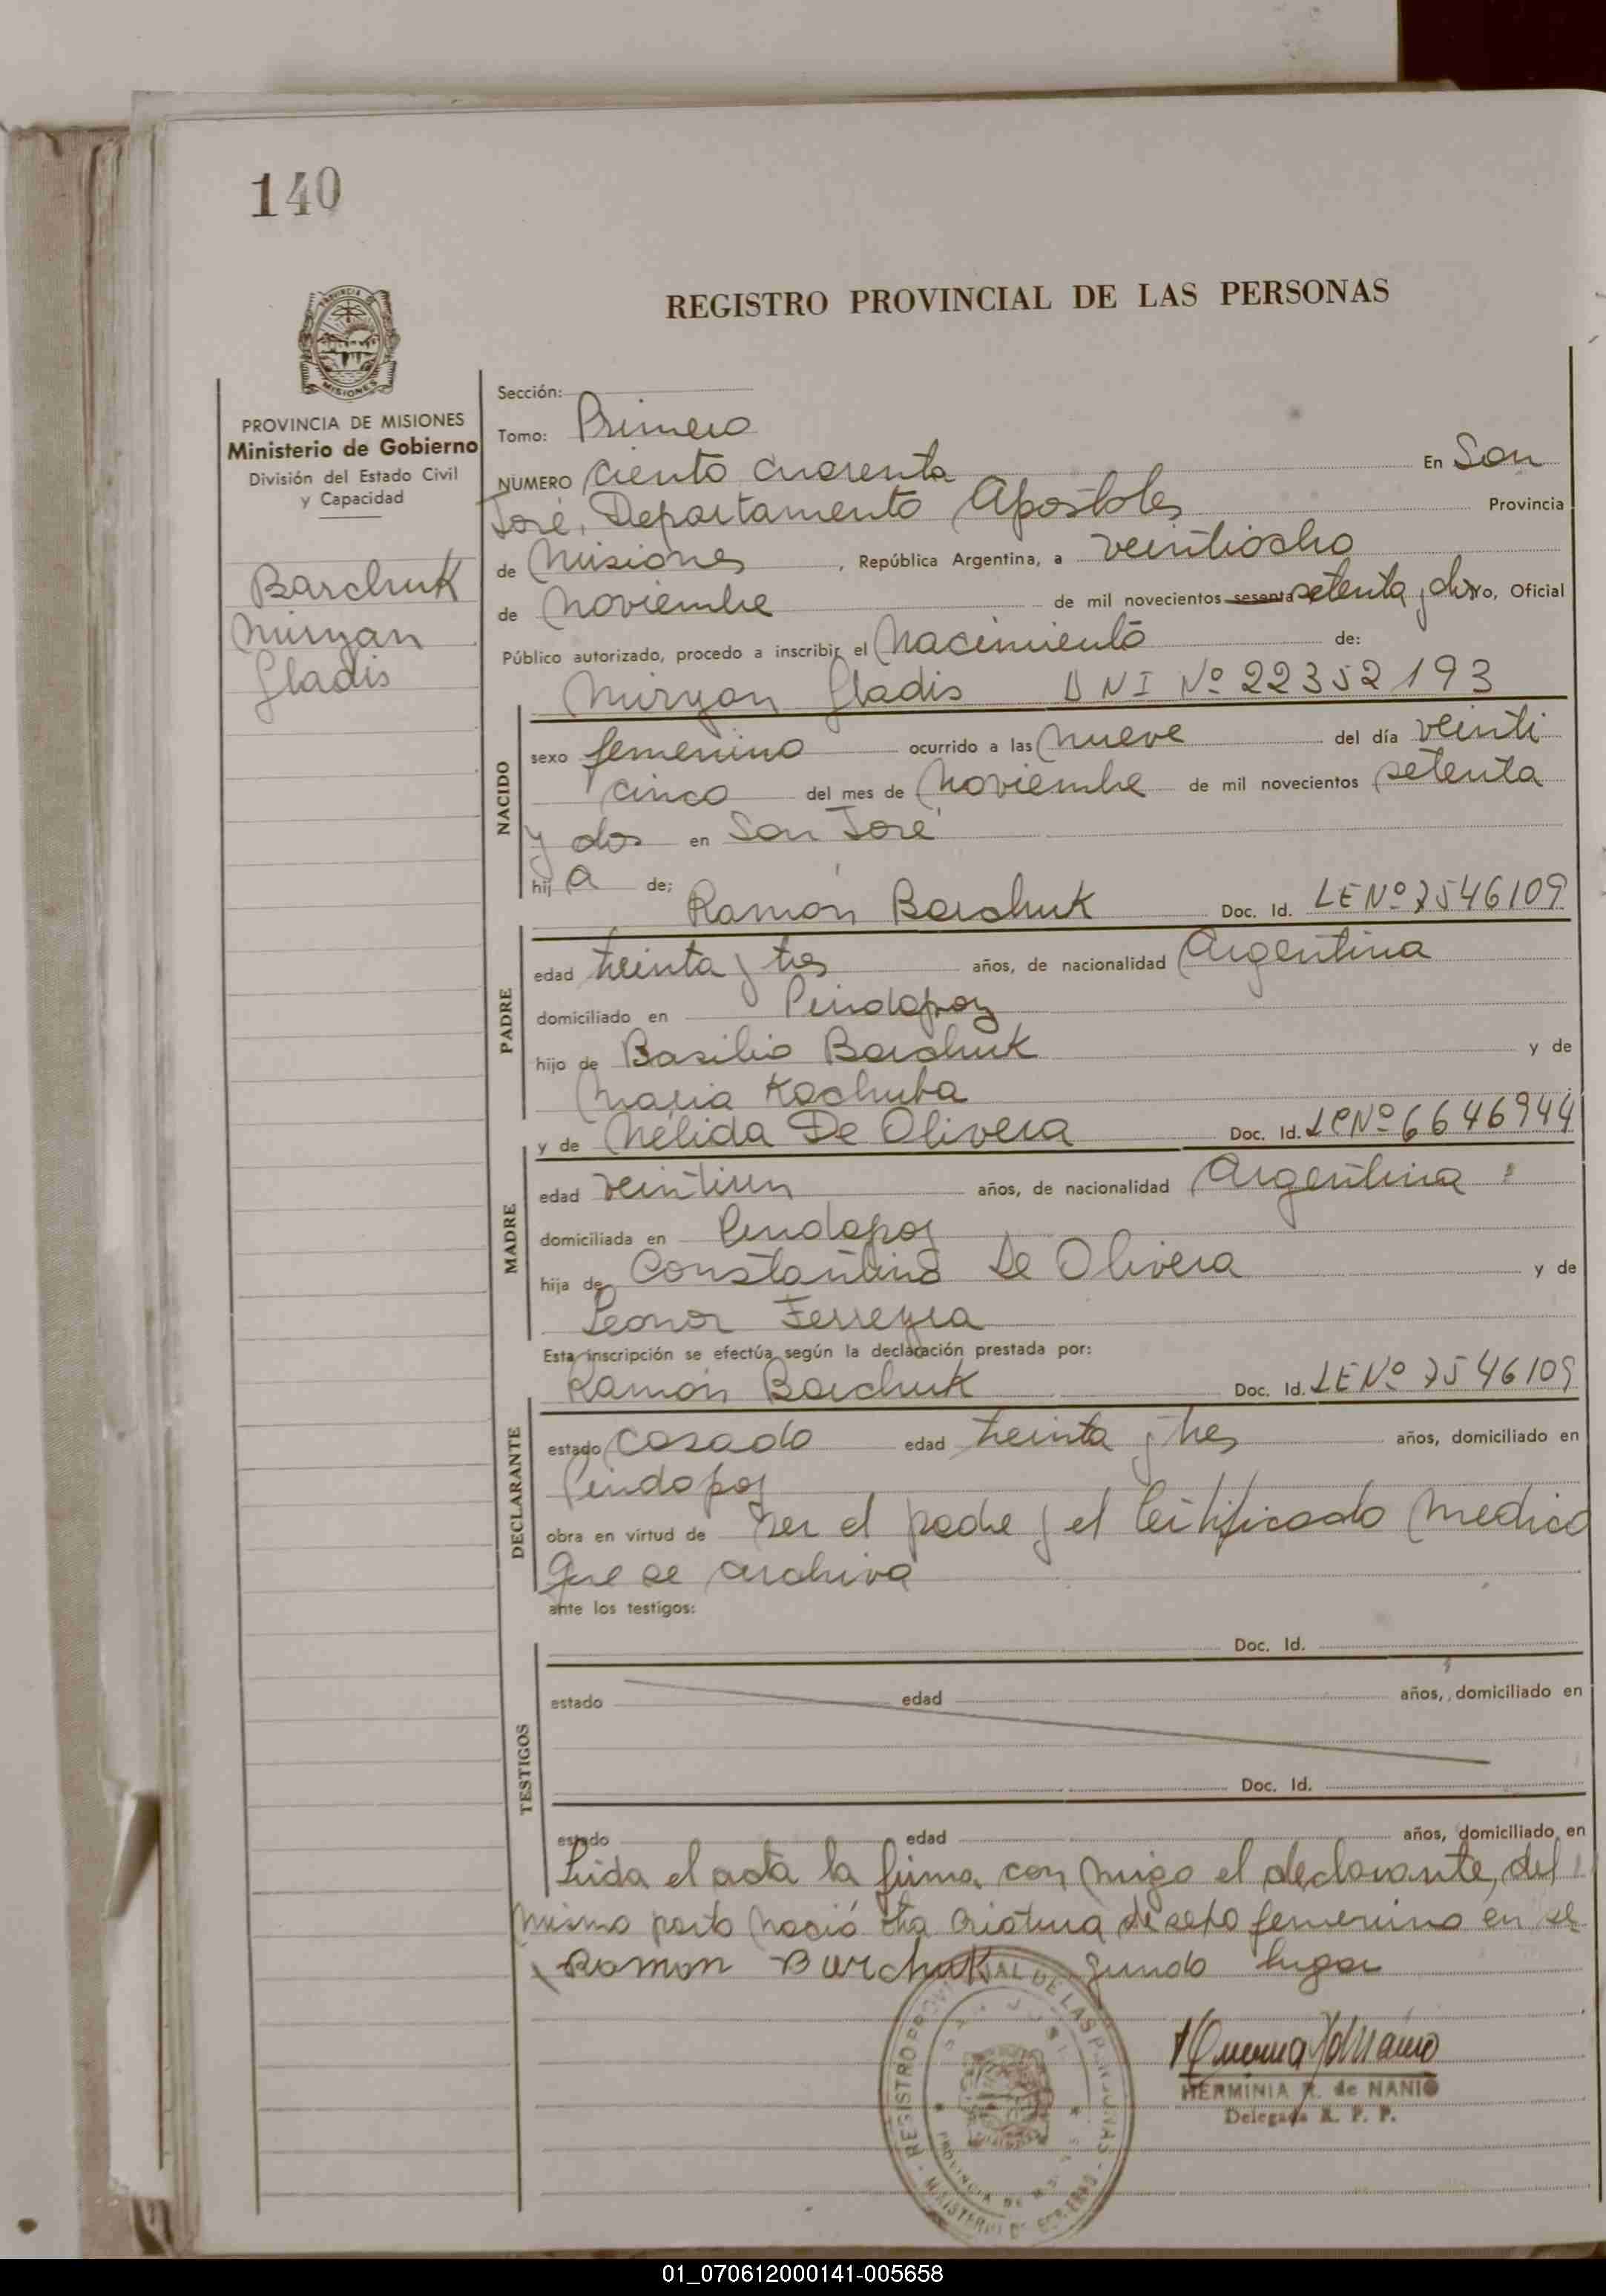 140
REGISTRO PROVINCIAL DE LAS PERSONAS
PROVINCIA DE MISIONES
Ministerio de Gobierno
División del Estado Civil
y Capacidad
Barchuk
Miryan
Gladis
Sección:
Tomo: Primero
NUMERO Ciento Cuarenta En San
José, Departamento Apostoles Provincia
de Misiones, República Argentina, a veintiocho
de Noviembre de mil novecientos sesenta setenta y dos, Oficial
Público autorizado, procedo a inscribir el Nacimiento de:
Miryan Gladis DNI Nº 22352193
NACIDO
sexo femenino ocurrido a las nueve del día veinti
cinco del mes de Noviembre de mil novecientos setenta
y dos en San José
hij a de: Ramón Barchuk Doc. Id. LE Nº 7546109
PADRE
edad treinta y tres años, de nacionalidad Argentina
domiciliado en Pindapoy
hijo de Basilio Barchuk y de
Maria Kachuba
y de Nélida De Olivera Doc. Id. LC Nº 6646944
MADRE
edad veintiun años, de nacionalidad Argentina
domiciliada en Pindapoy
hija de Constantino De Olivera y de
Leonor Ferreyra
Esta inscripción se efectúa según la declaración prestada por:
Ramón Barchuk Doc. Id. LE Nº 7546109
DECLARANTE
estado casado edad treinta y tres años, domiciliado en
Pindapoy
obra en virtud de ser el padre y el Certificado Medico
que se archiva
ante los testigos:
Doc. Id.
TESTIGOS
estado edad años, domiciliado en
Doc. Id.
estado edad años, domiciliado en
Leida el acta la firma con migo el declarante, del
mismo parto nació otra criatura de sexo femenino en se
Ramon Barchuk gundo lugar
REGISTRO PROVINCIAL DE LAS PERSONAS
SAN JOSE
PROVINCIA DE MISIONES
MINISTERIO DE GOBIERNO
HERMINIA R. de NANIO
Delegada R. P. P.
01_070612000141-005658